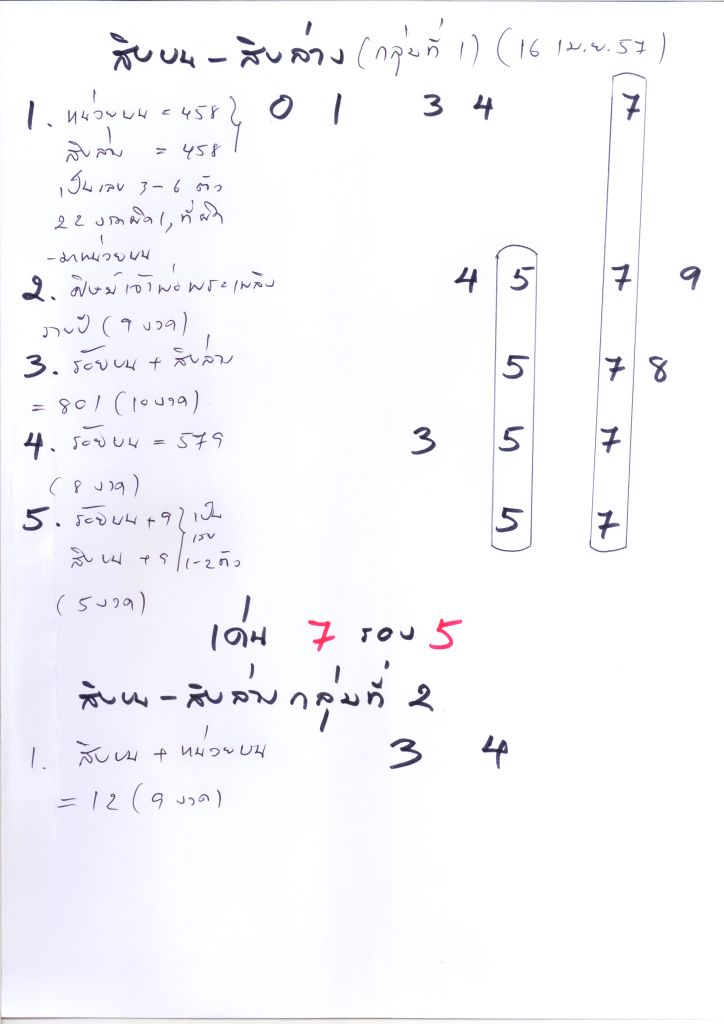 สิบบน - สิบล่าง (กลุ่มที่ 1) (16 เม.ย. 57)
1. หน่วยบน = 458 0 1 3 4 7
สิบล่าง = 458
เป็นเลข 3-6 ตัว
22 งวดผิด 1, ที่ผิด
- มาหน่วยบน
2. ศิษย์เจ้าพ่อพระเพลิง 4 5 7 9
รายปี (9 งวด)
3. ร้อยบน + สิบล่าง 5 7 8
= 801 (10 งวด)
4. ร้อยบน = 579 3 5 7
(8 งวด)
5. ร้อยบน + 9 เป็น 5 7
เลข
สิบบน + 9 1-2 ตัว
(5 งวด)
เด่น 7 รอง 5
สิบบน - สิบล่าง กลุ่มที่ 2
1. สิบบน + หน่วยบน 3 4
= 12 (9 งวด)